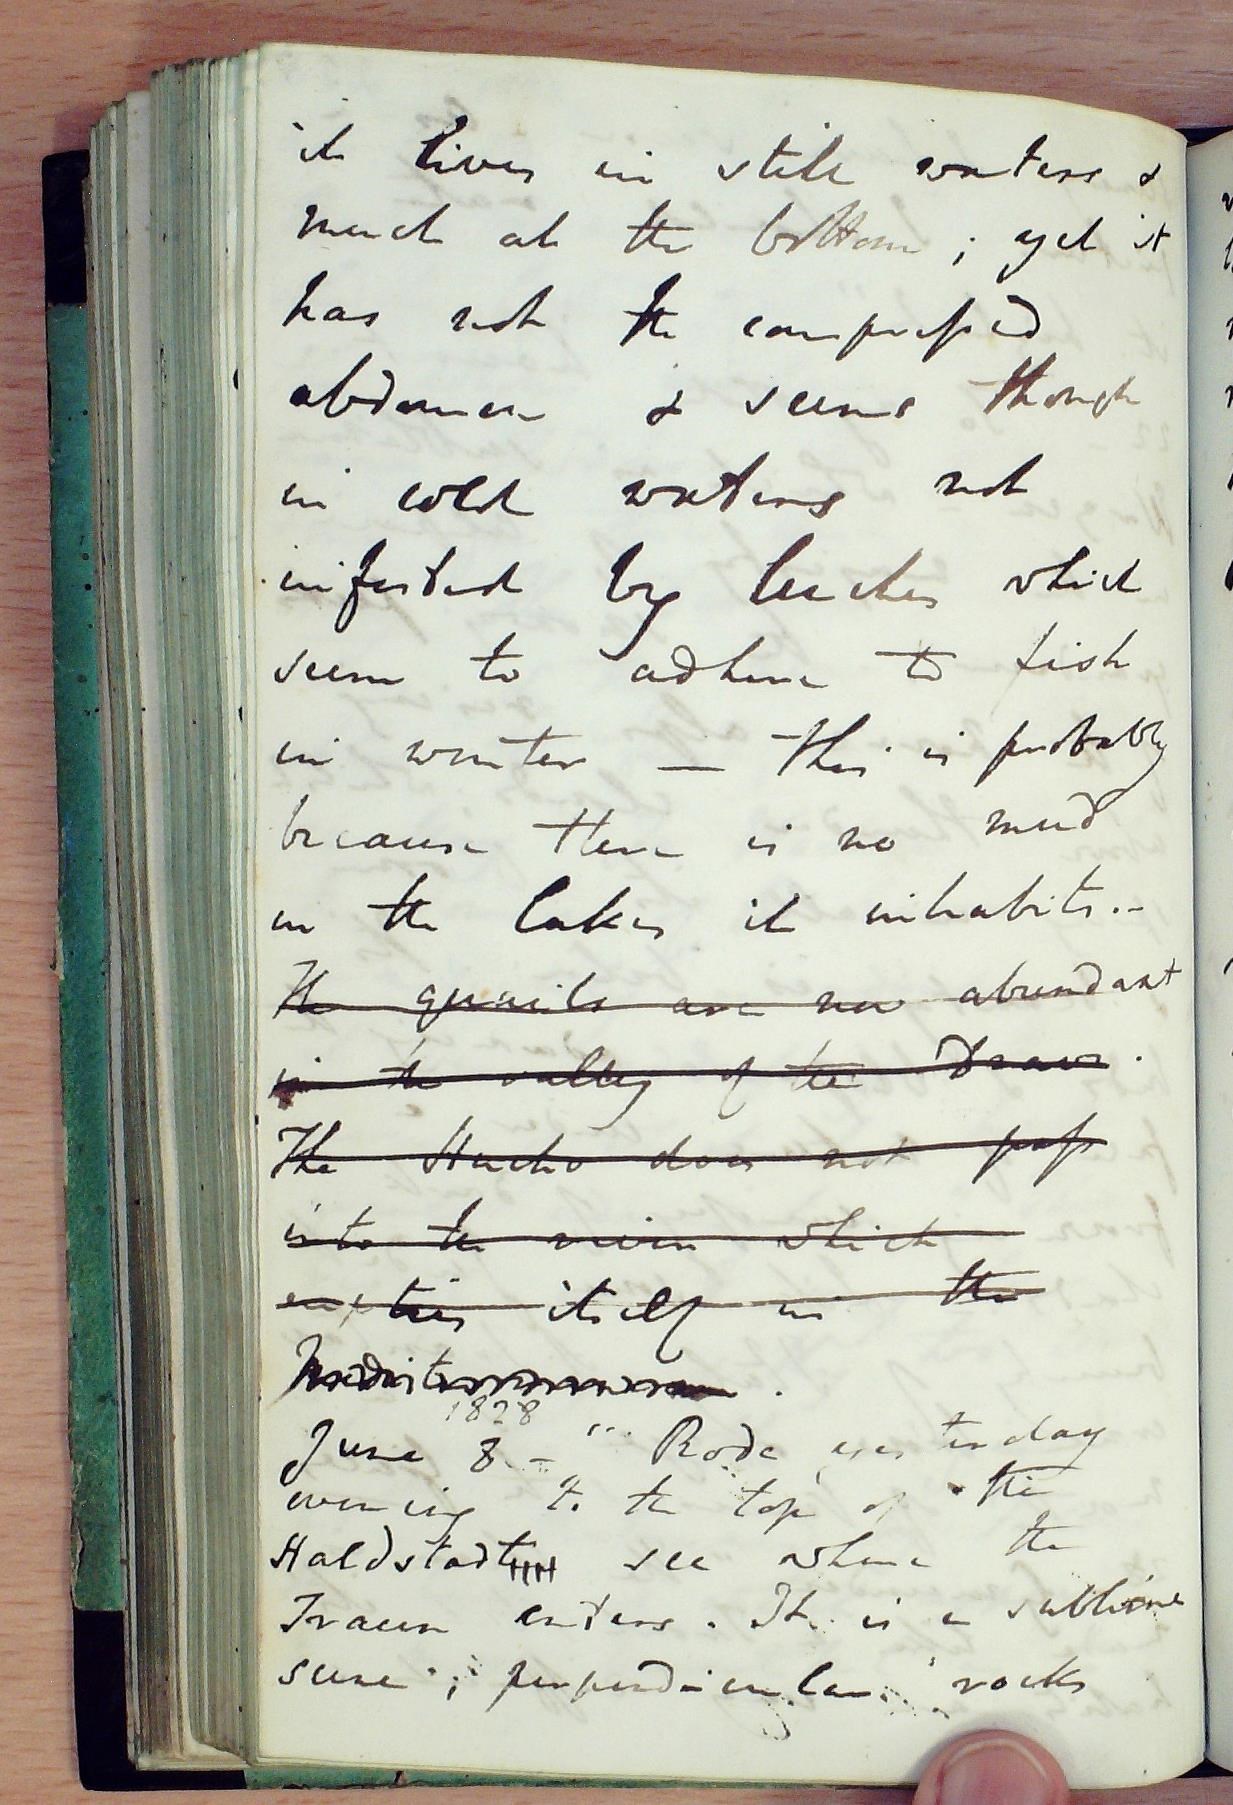 it lives in still waters &
much at the bottom; yet it
has not the compressed
abdomen & seems though
in cold waters not
infested by leeches which
seem to adhere to fish
in winter — This is probably
because there is no mud
in the lakes it inhabits.-
The quails are now abundant
in the valley of the Drave.
The Hucho does not pass
into the rivers which
empties itself in the
Mediterranean.
1828
June 8 - Rode yesterday
evening to the top of the
Haldstadt see where the
Traun enters. It is a sublime
scene; perpendicular rocks